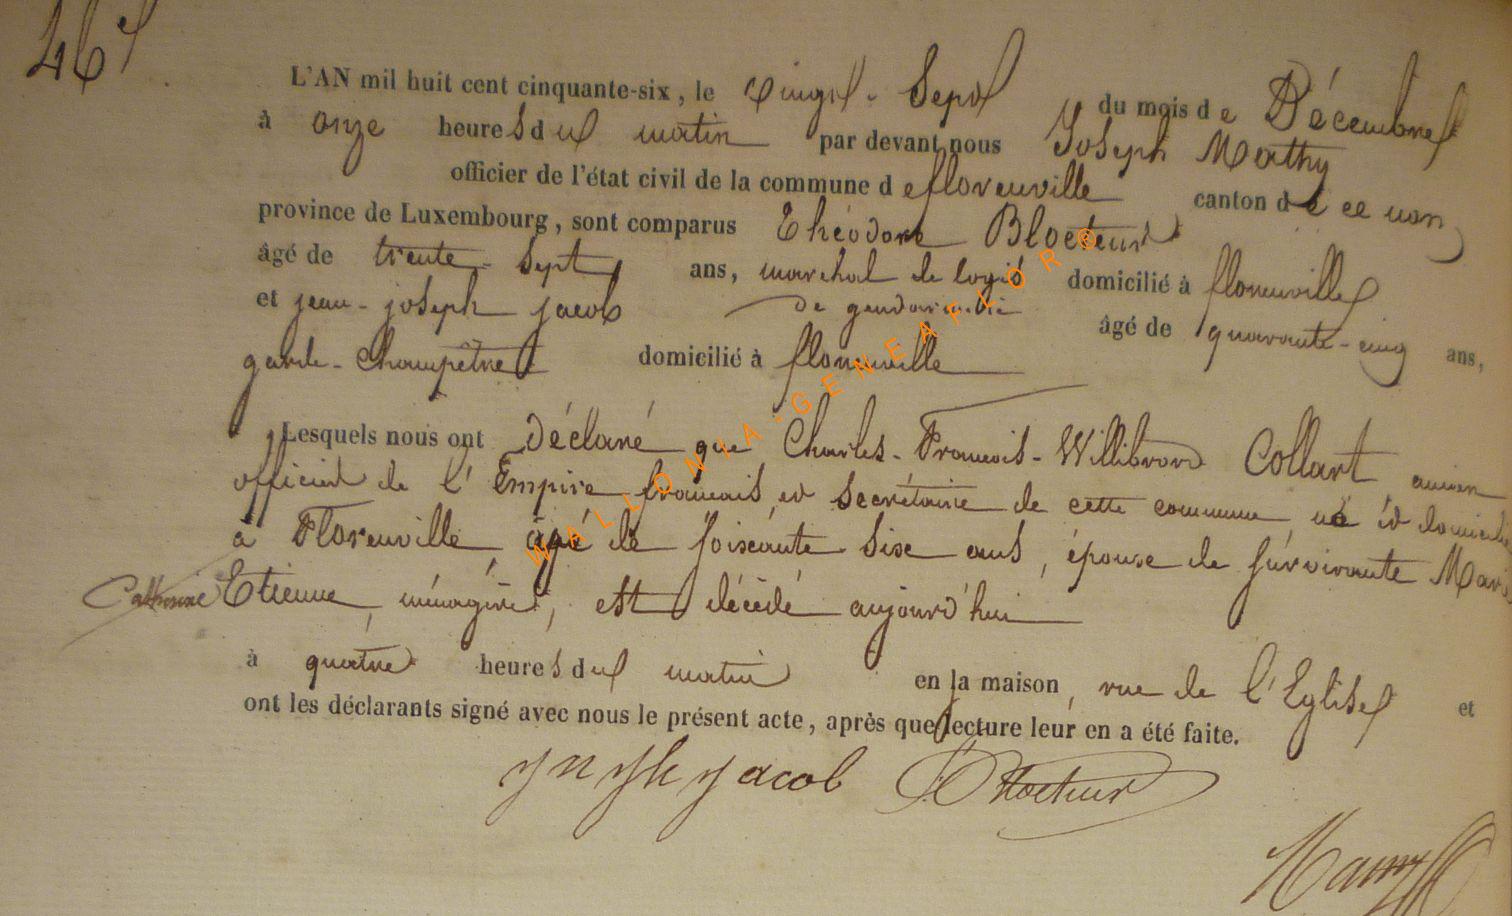 46
L'AN mil huit cent cinquante-six, le vingt-Sept du mois de Décembre
à onze heures du matin par devant nous Joseph Mathy
officier de l'état civil de la commune de florenville canton de ce nom
province de Luxembourg, sont comparus Théodore Blocteur
âgé de trente-Sept ans, maréchal de logis domicilié à florenville
de gendarmerie
et jean-joseph jacob âgé de quarante-cinq ans,
garde-Champêtre domicilié à florenville
Lesquels nous ont Déclaré que Charles-François-Willibrord Collart ancien
officier de l'Empire français, et secrétaire de cette commune né et domicilié
à Florenville, âgé de soixante six ans, époux de survivante Marie
Catherine Etienne, ménagère, est décédé aujourd'hui
à quatre heures du matin en la maison, rue de l'Eglise et
ont les déclarants signé avec nous le présent acte, après que lecture leur en a été faite.
jacob Blocteur
WALLONIA-GENEAFLOR®